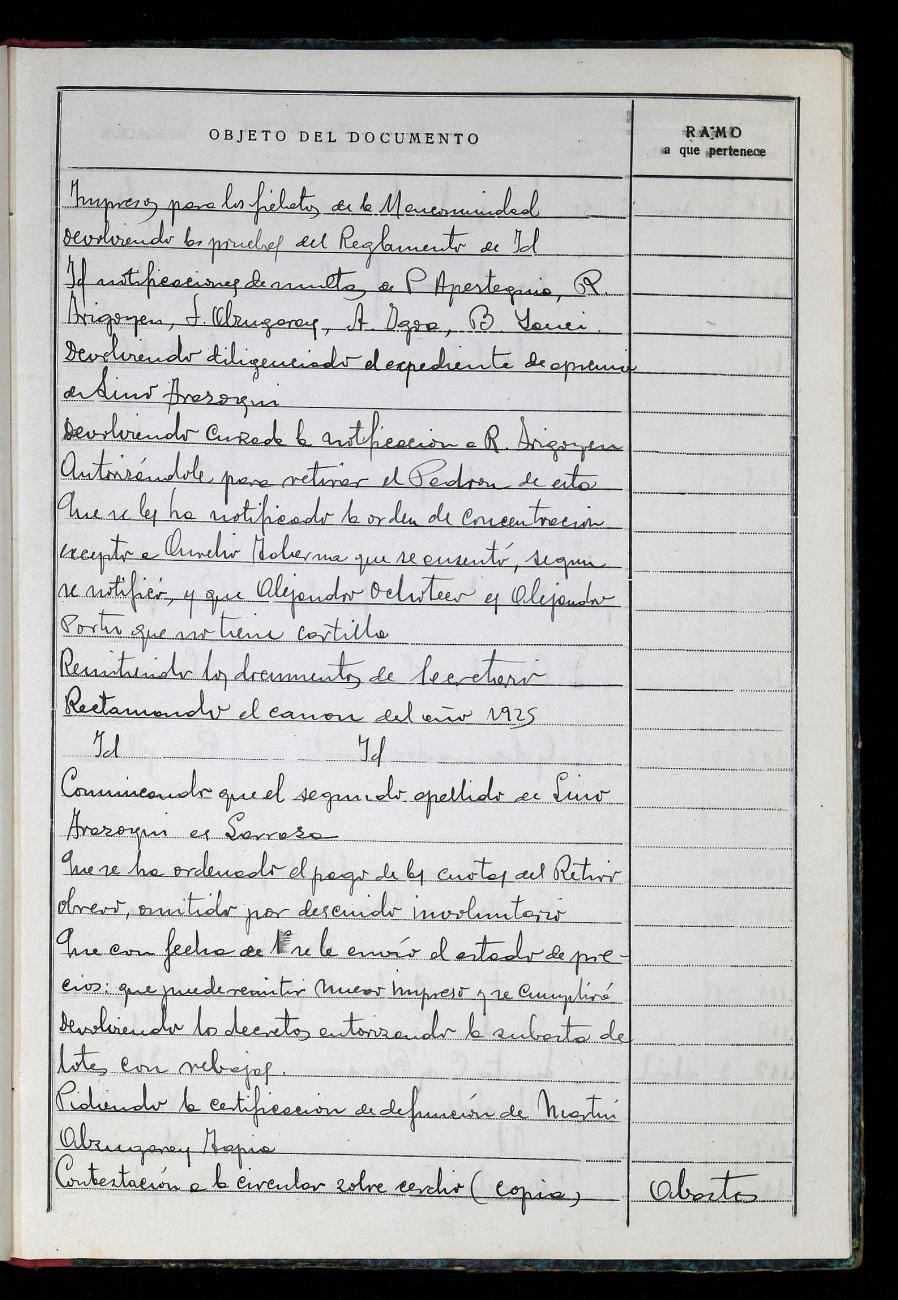 OBJETO DEL DOCUMENTO
RAMO
a que pertenece
Impresos para los fielatos de la Mancomunidad
Devolviendo las pruebas del Reglamento de Id
Id notificaciones de multas de P Apesteguia, R.
Irigoyen, J. Abzugaray, A. Ogoa, B
Devolviendo diligenciado el expediente de apremio
de Lino Arazoqui
Devolviendo cursada la notificacion a R. Irigoyen
Autorizándole para retirar el Padron de esta
Que se les ha notificado la orden de concentracion
excepto a Aurelio que se ausentó, segun
se notificó, y que Alejandro Ochoteco es Alejandro
Portu que no tiene cartilla
Remitiendo los documentos de Secretario
Reclamando el canon del año 1925
Id Id
Comunicando que el segundo apellido de Lino
Arazoqui es Larraza
Que se ha ordenado el pago de las cuotas del Retiro
obrero, omitido por descuido involuntario
Que con fecha de 1º se le envío el estado de pre-
cios: que puede remitir nuevo impreso y se cumplirá
Devolviendo los decretos autorizando la subasta de
lotes con rebajas.
Pidiendo la certificacion de defunción de Martin
Abzugaray Tapia
Contestación a la circular sobre cerdio (copia)
Abastos